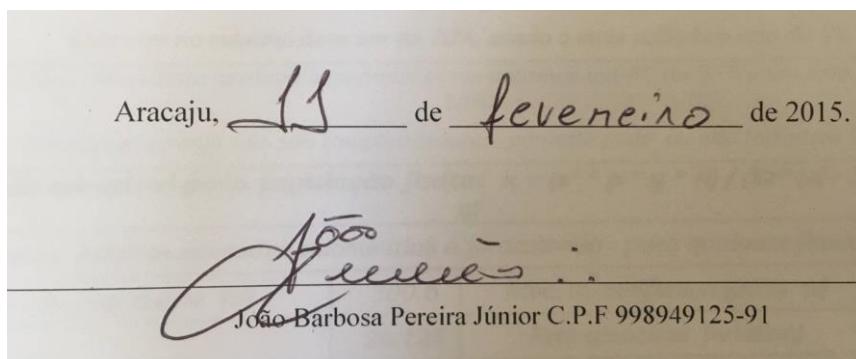 Aracaju, 11 de fevereiro de 2015.
João
João Barbosa Pereira Júnior C.P.F 998949125-91